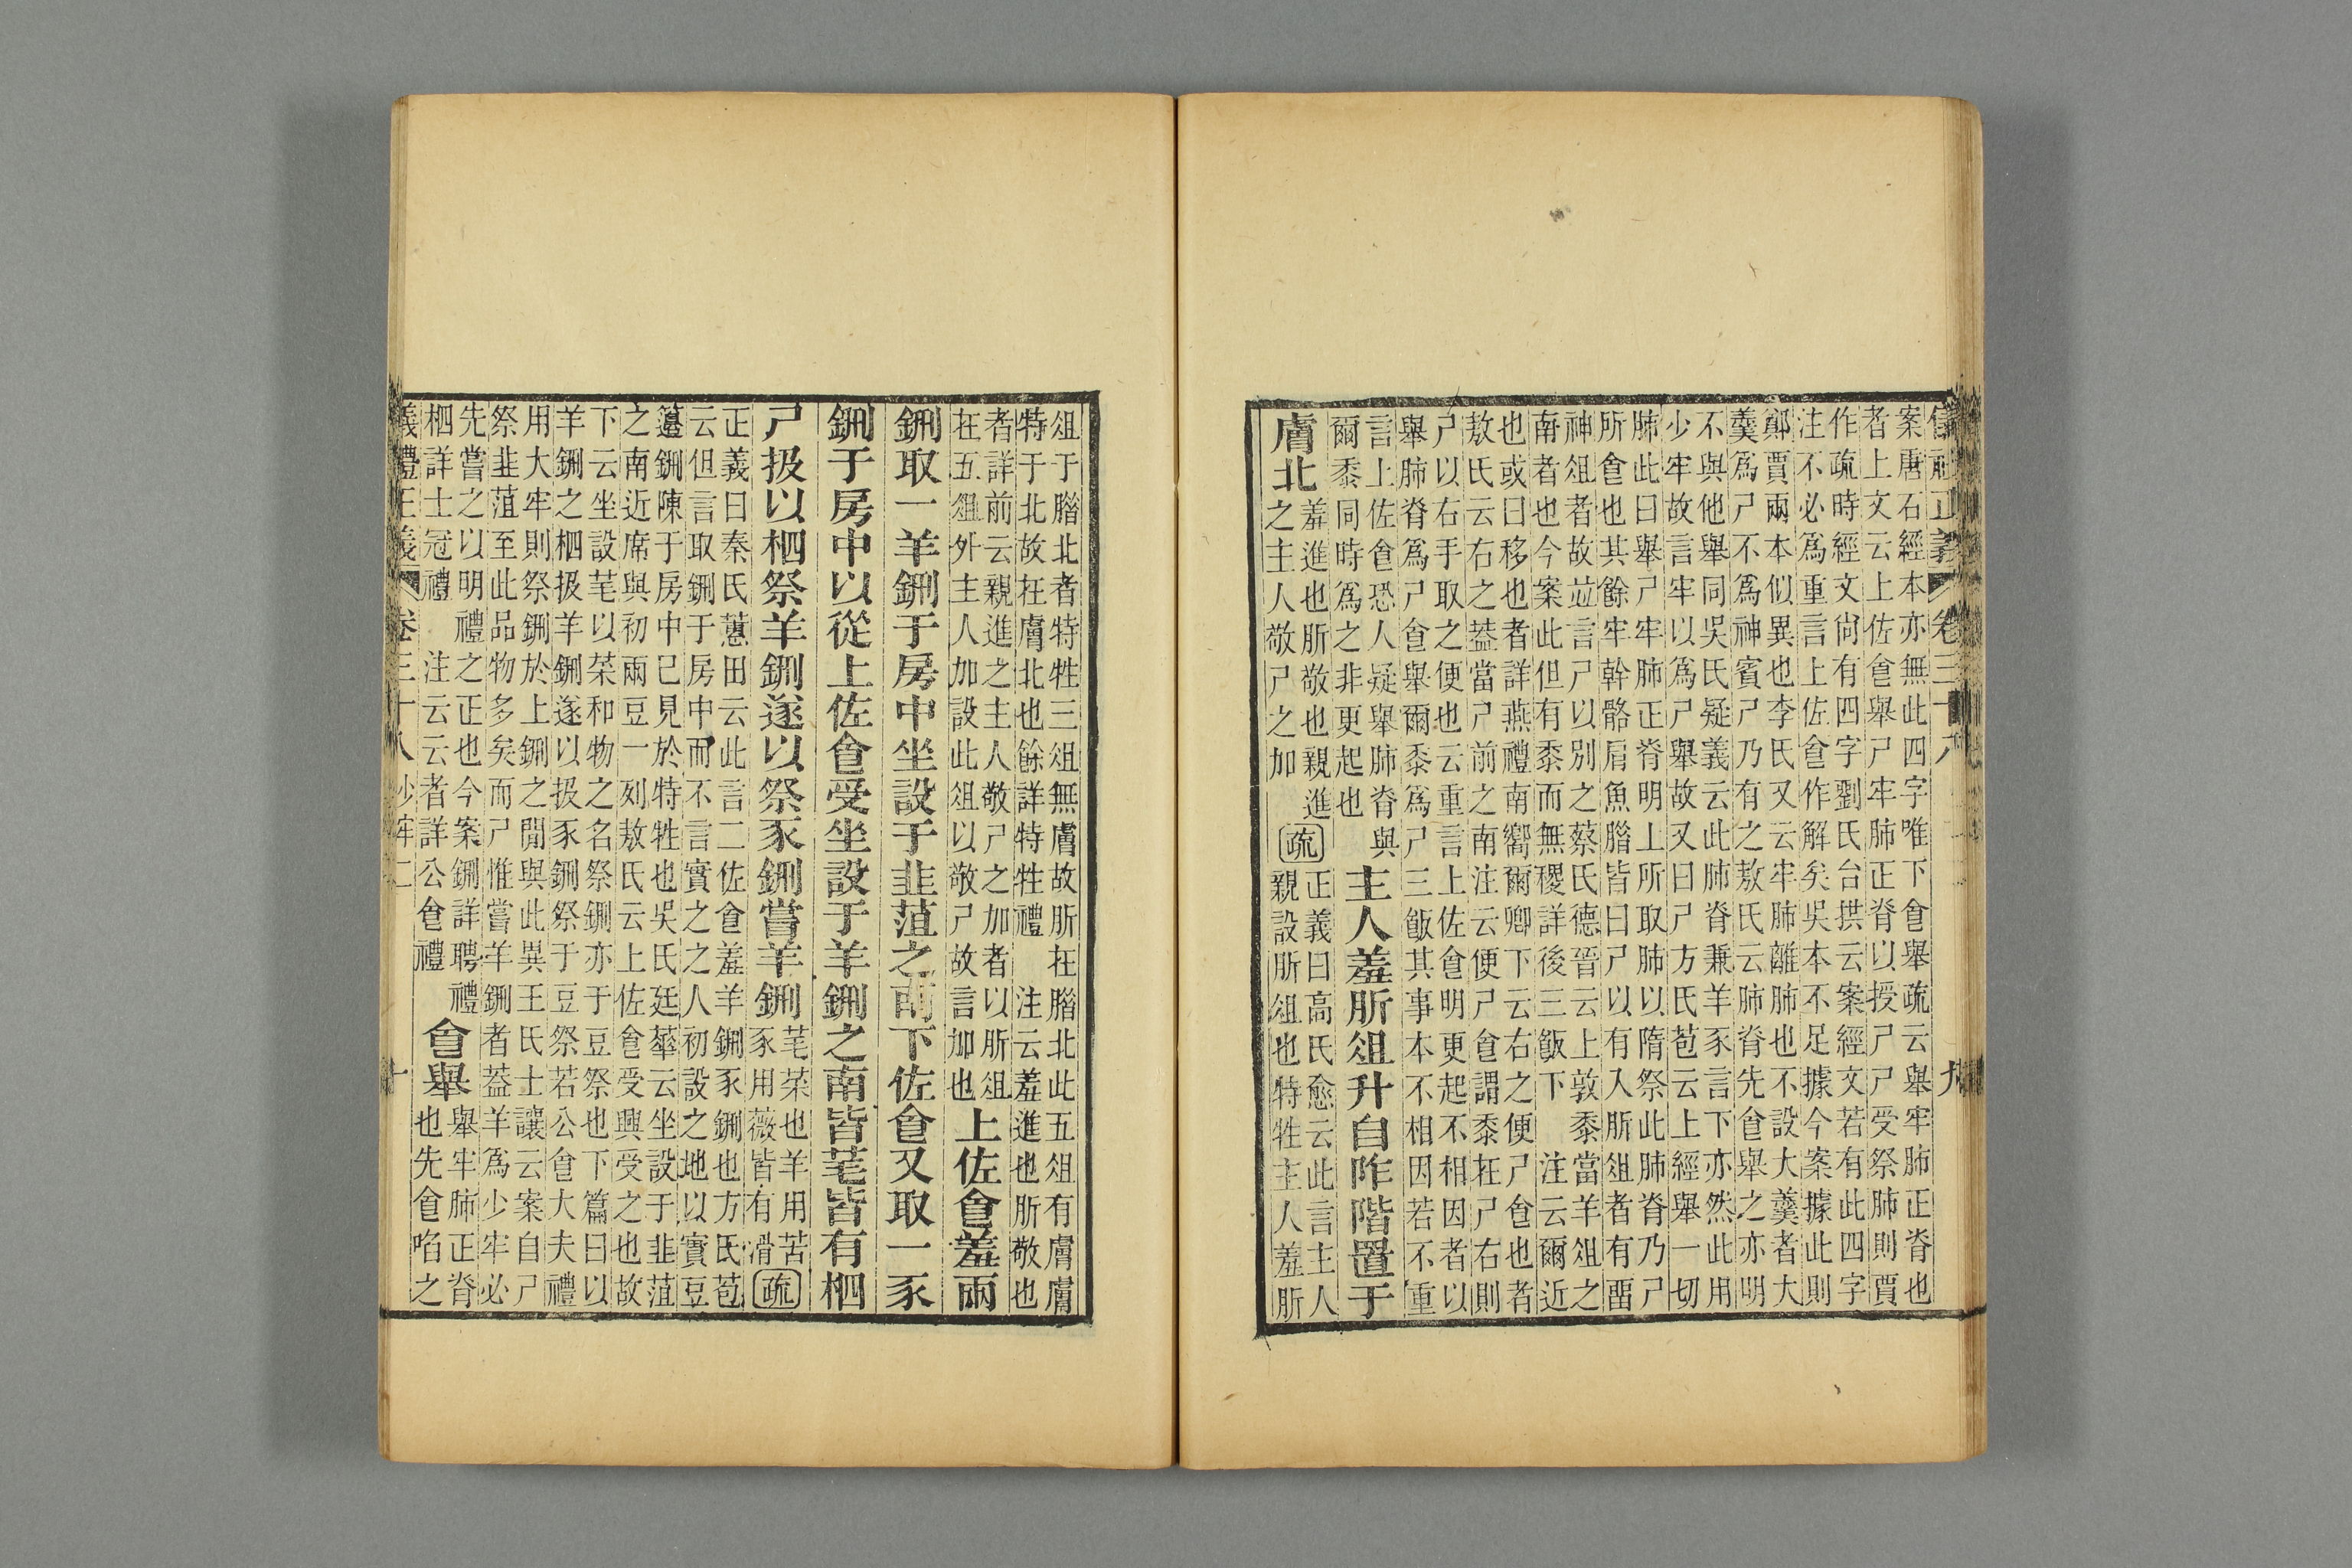 儀禮正義 卷三十八 九
案唐石經本亦無此四字唯下食舉疏云舉牢肺正脊也
者上文云上佐食舉尸牢肺正脊以授尸尸受祭肺則賈
作疏時經文尙有四字劉氏台拱云案經文若有此四字
注不必爲重言上佐食作解矣吳本不足據今案據此則
鄭賈兩本似異也李氏又云牢肺離肺也不設大羹者大
羹爲尸不爲神賓尸乃有之敖氏云肺脊先食舉之亦明
不與他舉同吳氏疑義云此肺脊兼羊豕言下亦然此用
少牢故言牢以爲尸舉故又曰尸方氏苞云上經舉一切
肺此曰舉尸牢肺正脊明上所取肺以隋祭此肺脊乃尸
所食也其餘牢幹骼肩魚腊皆曰尸以有入肵俎者有畱
神俎者故竝言尸以別之蔡氏德晉云上敦黍當羊俎之
南者也今案此但有黍而無稷詳後三飯下 注云爾近
也或曰移也者詳燕禮南嚮爾卿下云右之便尸食也者
敖氏云右之葢當尸前之南注云便尸食謂黍在尸右則
尸以右手取之便也云重言上佐食明更起不相因者以
舉肺脊爲尸食舉爾黍爲尸三飯其事本不相因若不重
言上佐食恐人疑舉肺脊與
爾黍同時爲之非更起也
主人羞肵俎升自阼階置于
膚北
羞進也肵敬也親進
之主人敬尸之加
疏
正義曰高氏愈云此言主人
親設肵俎也特牲主人羞肵
俎于腊北者特牲三俎無膚故肵在腊北此五俎有膚膚
特于北故在膚北也餘詳特牲禮 注云羞進也肵敬也
者詳前云親進之主人敬尸之加者以肵俎
在五俎外主人加設此俎以敬尸故言加也
上佐食羞兩
鉶取一羊鉶于房中坐設于韭菹之南下佐食又取一豕
鉶于房中以從上佐食受坐設于羊鉶之南皆芼皆有柶
尸扱以柶祭羊鉶遂以祭豕鉶嘗羊鉶
芼菜也羊用苦
豕用薇皆有滑
疏
正義曰秦氏蕙田云此言二佐食羞羊鉶豕鉶也方氏苞
云但言取鉶于房中而不言實之之人初設之地以實豆
籩鉶陳于房中已見於特牲也吳氏廷華云坐設于韭菹
之南近席與初兩豆一列敖氏云上佐食受興受之也故
下云坐設芼以菜和物之名祭鉶亦于豆祭也下篇曰以
羊鉶之柶扱羊鉶遂以扱豕鉶祭于豆祭若公食大夫禮
用大牢則祭鉶於上鉶之閒與此異王氏士讓云案自尸
祭韭菹至此品物多矣而尸惟嘗羊鉶者葢羊爲少牢必
先嘗之以明禮之正也今案鉶詳聘禮
柶詳士冠禮 注云云者詳公食禮
食舉
舉牢肺正脊
也先食啗之
儀禮正義 卷三十八 少牢二 十